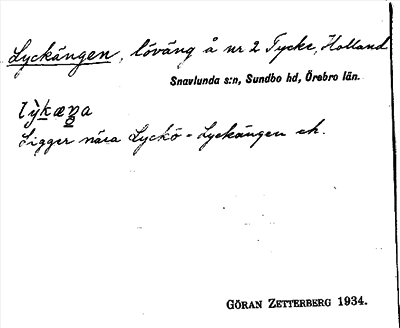 Lyckängen, löväng å nr 2 Tycke, Holland
Snavlunda s:n, Sundbo hd, Örebro län.
Ligger nära Lyckö - Lyckängen eh.
GÖRAN ZETTERBERG 1934.